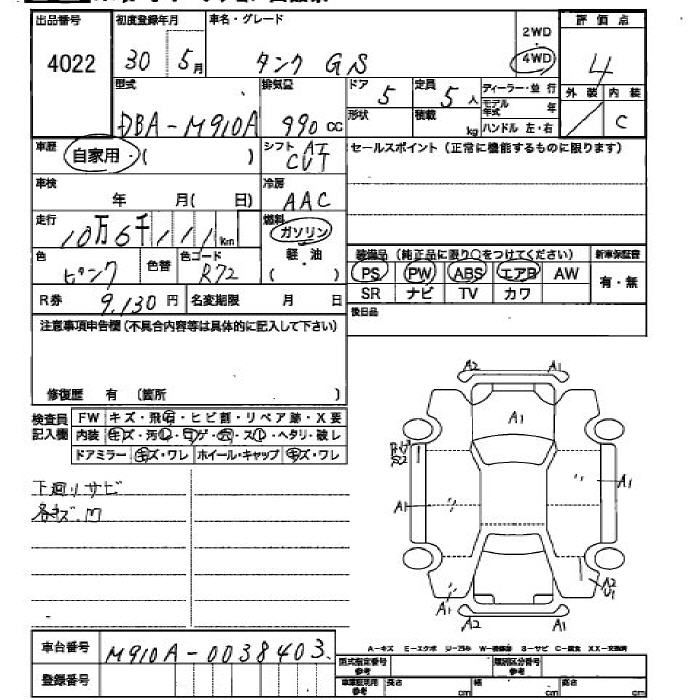 出品番号 初度登録年月 車名・グレード 評価点
4022 30 5月 タンク GS 2WD 4WD 4
型式 排気量 ドア 定員 ディーラー・並行 外装 内装
DBA-M910A 990cc 5 5人 モデル年式 年 C
形状 積載 kg ハンドル 左・右
車歴 自家用・( ) シフト AT CVT セールスポイント(正常に機能するものに限ります)
車検 年 月( 日) 冷房 AAC
走行 10万6千111km 燃料 ガソリン 軽・油 ( )
色 ピンク 色替 色コード R72
装備品(純正品に限り○をつけてください) 新車保証書
PS PW ABS エアB AW 有・無
SR ナビ TV カワ
R券 9,130円 名変期限 月 日 後日品
注意事項申告欄(不具合内容等は具体的に記入して下さい)
修復歴 有 (箇所 )
検査員記入欄 FW キズ・飛石・ヒビ割・リペア跡・X要
内装 キズ・汚レ・コゲ・穴・スレ・ヘタリ・破レ
ドアミラー キズ・ワレ ホイール・キャップ キズ・ワレ
下廻リサビ
各キズ.凹
A2 A1
A1
A1 A1
A1 A2 U1
A2 A1
A-キズ E-エクボ U-凹み W-補修跡 S-サビ C-腐食 XX-交換済
車台番号 M910A-0038403
登録番号
型式指定番号参考 類別区分番号参考
車庫証明用参考 長さ cm 幅 cm 高さ cm